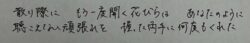 散り際に もう一度開く花びらは あなたのように
聴こえない頑張れを 握った両手に何度もくれた